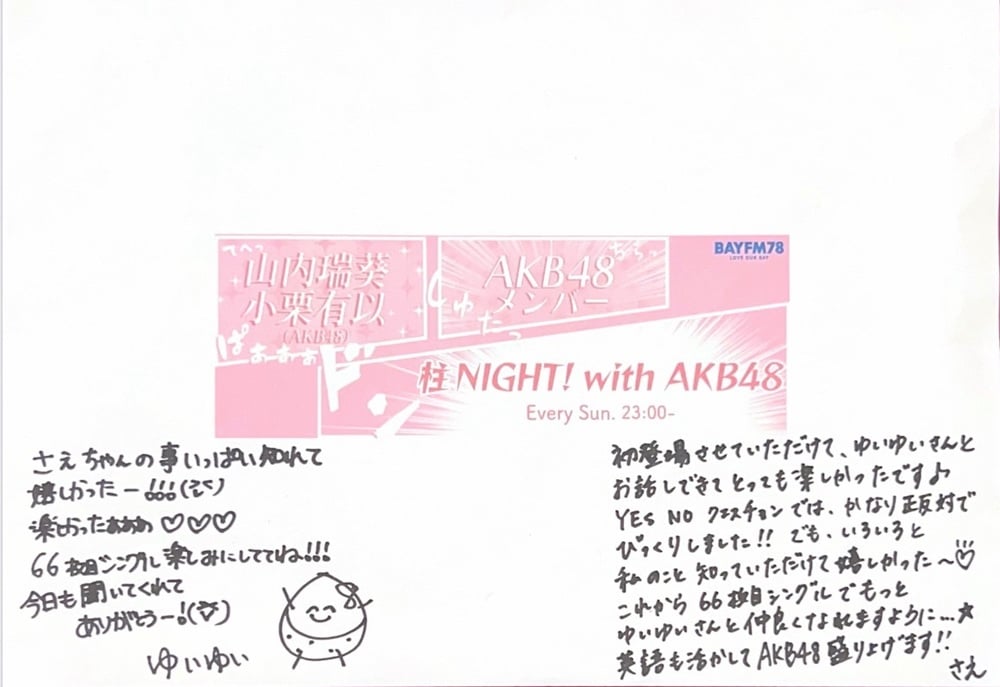 てへっ
山内瑞葵
小栗有以
(AKB48)
ぱぁぁぁぁ
AKB48
メンバー
しゅたっ
BAYFM78
LOVE OUR BAY
柱NIGHT! with AKB48
Every Sun. 23:00-
さえちゃんの事いっぱい知れて
嬉しかったー!!!
楽しかったぁぁぁ♡♡♡
66枚目シングル楽しみにしててね!!!
今日も聞いてくれて
ありがとうー!
ゆいゆい
初登場させていただけて、ゆいゆいさんと
お話しできてとっても楽しかったです♪
YES NO クエスチョンでは、かなり正反対で
びっくりしました!! でも、いろいろと
私のこと知っていただけて嬉しかった〜♡
これから66枚目シングルでもっと
ゆいゆいさんと仲良くなれますように...★
英語も活かしてAKB48盛り上げます!!
さえ